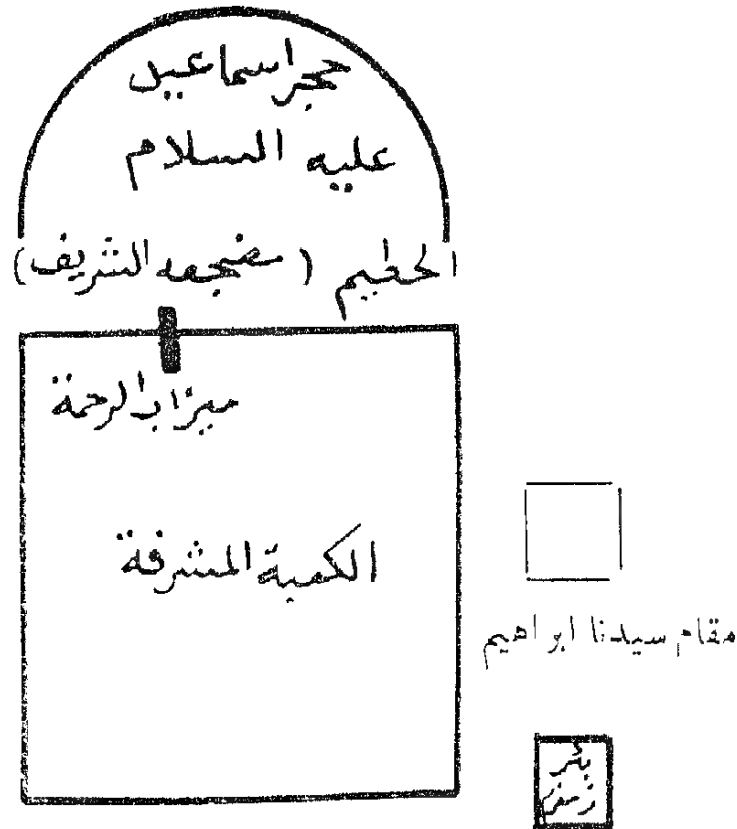 حجر اسماعيل
عليه السلام
الحطيم ( مضجعه الشريف )
ميزاب الرحمة
الكعبة المشرفة
مقام سيدنا ابراهيم
بئر
زمزم